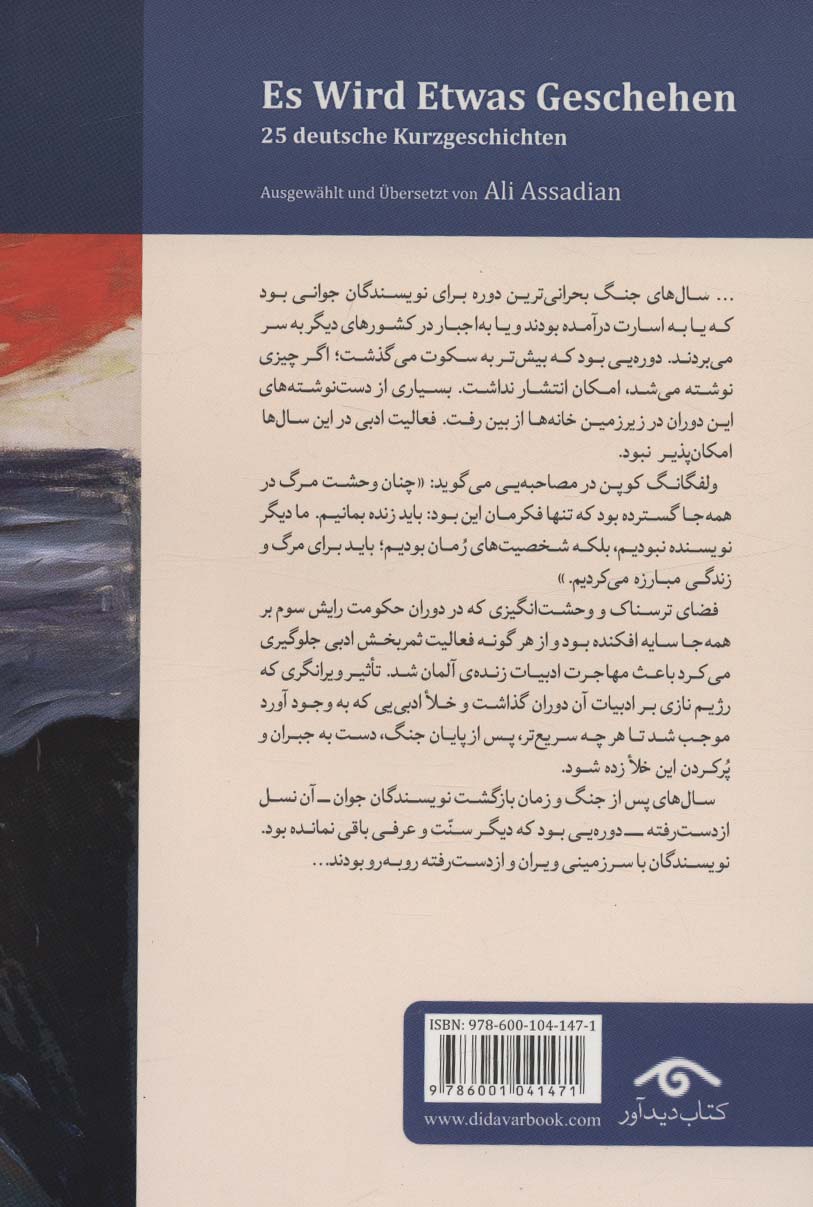 Es Wird Etwas Geschehen
25 deutsche Kurzgeschichten
Ausgewählt und Übersetzt von Ali Assadian
... سال‌های جنگ بحرانی‌ترین دوره برای نویسندگان جوانی بود
که یا به اسارت درآمده بودند و یا به‌اجبار در کشورهای دیگر به سر
می‌بردند. دوره‌یی بود که بیش‌تر به سکوت می‌گذشت؛ اگر چیزی
نوشته می‌شد، امکان انتشار نداشت. بسیاری از دست‌نوشته‌های
این دوران در زیرزمین خانه‌ها از بین رفت. فعالیت ادبی در این سال‌ها
امکان‌پذیر نبود.
ولفگانگ کوپن در مصاحبه‌یی می‌گوید: «چنان وحشت مرگ در
همه‌جا گسترده بود که تنها فکرمان این بود: باید زنده بمانیم. ما دیگر
نویسنده نبودیم، بلکه شخصیت‌های رُمان بودیم؛ باید برای مرگ و
زندگی مبارزه می‌کردیم.»
فضای ترسناک و وحشت‌انگیزی که در دوران حکومت رایش سوم بر
همه‌جا سایه افکنده بود و از هر گونه فعالیت ثمربخش ادبی جلوگیری
می‌کرد باعث مهاجرت ادبیات زنده‌ی آلمان شد. تأثیر ویرانگری که
رژیم نازی بر ادبیات آن دوران گذاشت و خلأ ادبی‌یی که به وجود آورد
موجب شد تا هر چه سریع‌تر، پس از پایان جنگ، دست به جبران و
پُرکردن این خلأ زده شود.
سال‌های پس از جنگ و زمان بازگشت نویسندگان جوان ــ آن نسل
ازدست‌رفته ــ دوره‌یی بود که دیگر سنّت و عرفی باقی نمانده بود.
نویسندگان با سرزمینی ویران و ازدست‌رفته روبه‌رو بودند...
ISBN: 978-600-104-147-1
9 786001 041471
www.didavarbook.com
کتاب دیدآور